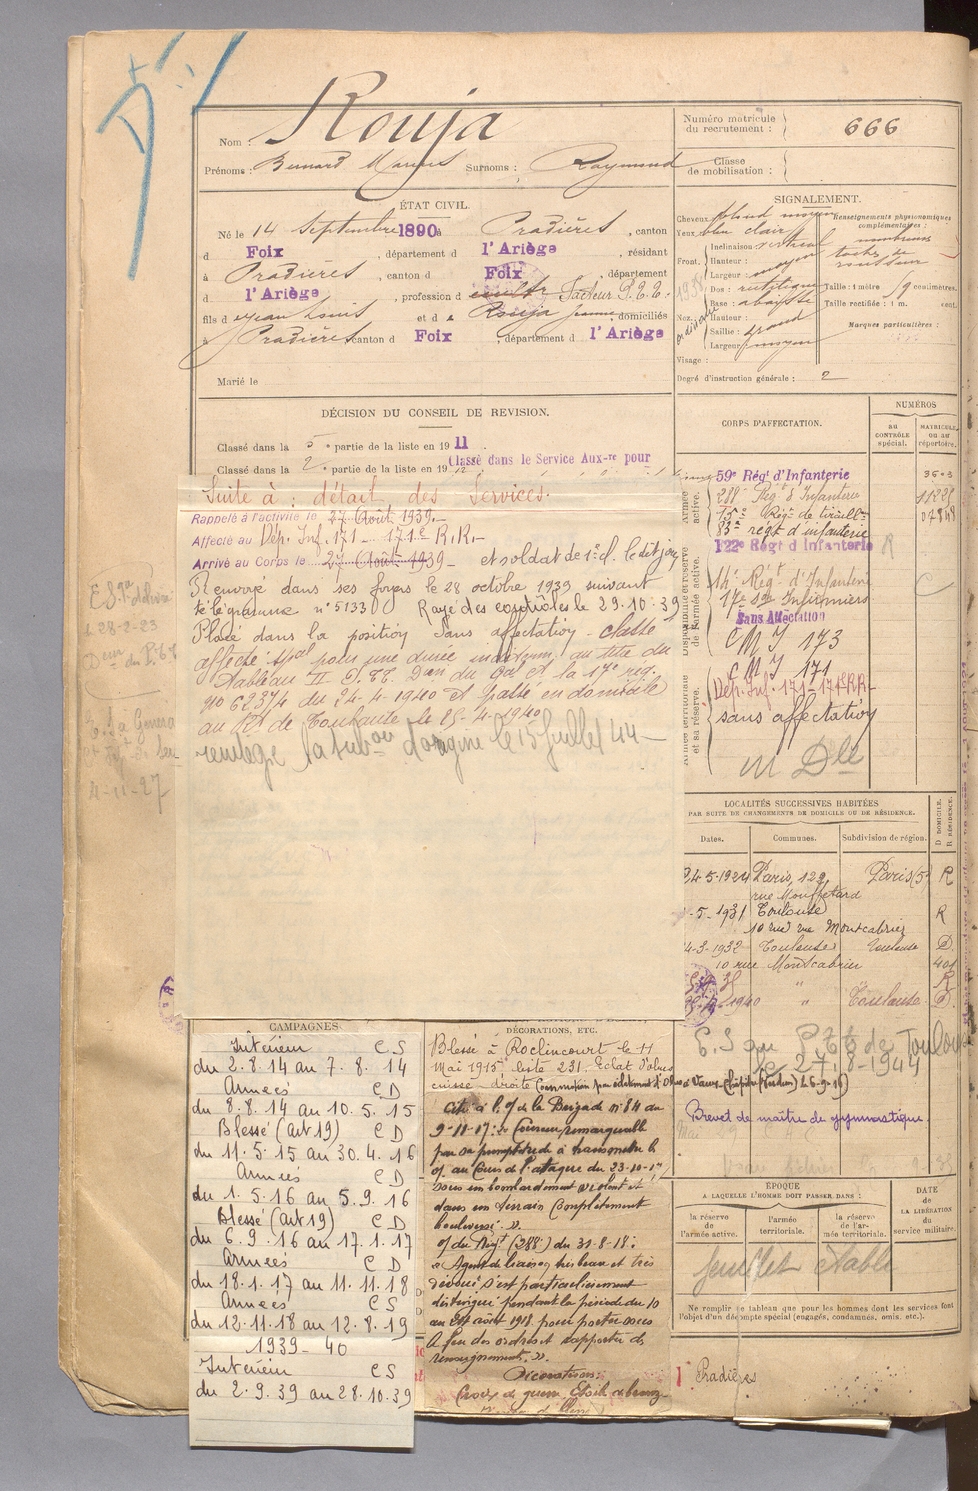 Nom : Rouja
Prénoms : Bernard Marius Surnoms : Raymond
Numéro matricule du recrutement : 666
Classe de mobilisation :
ÉTAT CIVIL.
Né le 14 Septembre 1890 à Pradières, canton
d Foix, département d l'Ariège, résidant
à Pradières, canton d Foix, département
d l'Ariège, profession d facteur P.T.T.
fils d Jean Louis et d Rouja Jeanne, domiciliés
à Pradières canton d Foix, département d l'Ariège
Marié le
SIGNALEMENT.
Cheveux blond moyen
Yeux bleu clair
Front. Inclinaison vertical
Hauteur :
Largeur : moyen
Nez. Dos : rectiligne
Base : abaissée
Hauteur :
Saillie : grand
Largeur : moyen
Visage :
Renseignements physionomiques complémentaires :
nombreuses
taches de
rousseur
Taille : 1 mètre centimètres.
Taille rectifiée : 1 m. cent.
Marques particulières :
Degré d'instruction générale : 2
DÉCISION DU CONSEIL DE REVISION.
Classé dans la 5e partie de la liste en 1911
Classé dans la 2e partie de la liste en 19
Classé dans le Service Aux-re pour
Suite à : détail des Services.
Rappelé à l'activité le 27 Août 1939.
Affecté au Dép. Inf. 171 - 171e R.R.
Arrivé au Corps le 27 Août 1939 - et soldat de 1e cl. le dit jour
Renvoyé dans ses foyers le 28 octobre 1939 suivant
télégramme n° 5133 Rayé des contrôles le 29.10.39
Placé dans la position Sans affectation. classé
affecté spal pour une durée indéterm. au titre du
tableau II P.TT. Don du Gal Ct la 17e rég.
N° 6237/4 du 24-4-1940 et passé en domicile
au Rt de Toulouse le 25-4-1940
réintègre la subon d'origine le 15 Juillet 44
CORPS D'AFFECTATION.
NUMÉROS
AU CONTRÔLE spécial.
MATRICULE ou au répertoire.
59e Régt d'Infanterie
288e Régt d'Infanterie
15e Régt de tirailleurs
83e régt d'infanterie
122e Régt d'Infanterie
14e Régt d'Infanterie
17e Son Infirmiers
Sans Affectation
C M I 173
C M I 171
Dép. Inf. 171 - 171e RR
sans affectation
M Dle
LOCALITÉS SUCCESSIVES HABITÉES
PAR SUITE DE CHANGEMENTS DE DOMICILE OU DE RÉSIDENCE.
Dates. Communes. Subdivision de région. D DOMICILE. R RÉSIDENCE.
24-5-1924 Paris, 122, Paris (5) R
rue Mouffetard
-5-1931 Toulouse R
10 rue Montcabrier
4-3-1932 Toulouse Toulouse D
10 rue Montcabrier
1940 " Toulouse D.
E.S. au PTT de Toulouse
le 27-8-1944
Brevet de maître de gymnastique
CAMPAGNES
Intérieur C S
du 2.8.14 au 7.8.14
Armées C D
du 8.8.14 au 10.5.15
Blessé (art 19) C D
du 11.5.15 au 30.4.16
Armées C D
du 1.5.16 au 5.9.16
Blessé (art 19) C D
du 6.9.16 au 17.1.17
Armées C D
du 18.1.17 au 11.11.18
Armées C S
du 12.11.18 au 12.8.19
1939-40
Intérieur C S
du 2.9.39 au 28.10.39
DÉCORATIONS, ETC.
Blessé à Roclincourt le 11
Mai 1915 liste 231. Eclat d'obus
cuisse droite Commotion par éclatement d'obus à Vaux-Chapitre (Verdun) le 6-9-16
Cité à l'o/ de la Brigade n° 84 du
9-11-17 : « Coureur remarquable
par sa promptitude à transmettre les
o/. au cours de l'attaque du 23-10-17
sous un bombardement violent et
dans un terrain complètement
bouleversé. »
o/ du Régt (288e) du 31-8-18 :
« Agent de liaison très beau et très
dévoué s'est particulièrement
distingué pendant la période du 10
au août 1918 pour porter sous
le feu des ordres et rapporter des
renseignements. »
Décorations :
Croix de guerre Etoile de bronze
ÉPOQUE
A LAQUELLE L'HOMME DOIT PASSER DANS :
la réserve de l'armée active.
l'armée territoriale.
la réserve de l'armée territoriale.
DATE de LA LIBÉRATION du service militaire.
feuillet établi
Ne remplir ce tableau que pour les hommes dont les services font
l'objet d'un décompte spécial (engagés, condamnés, omis, etc.).
Pradières